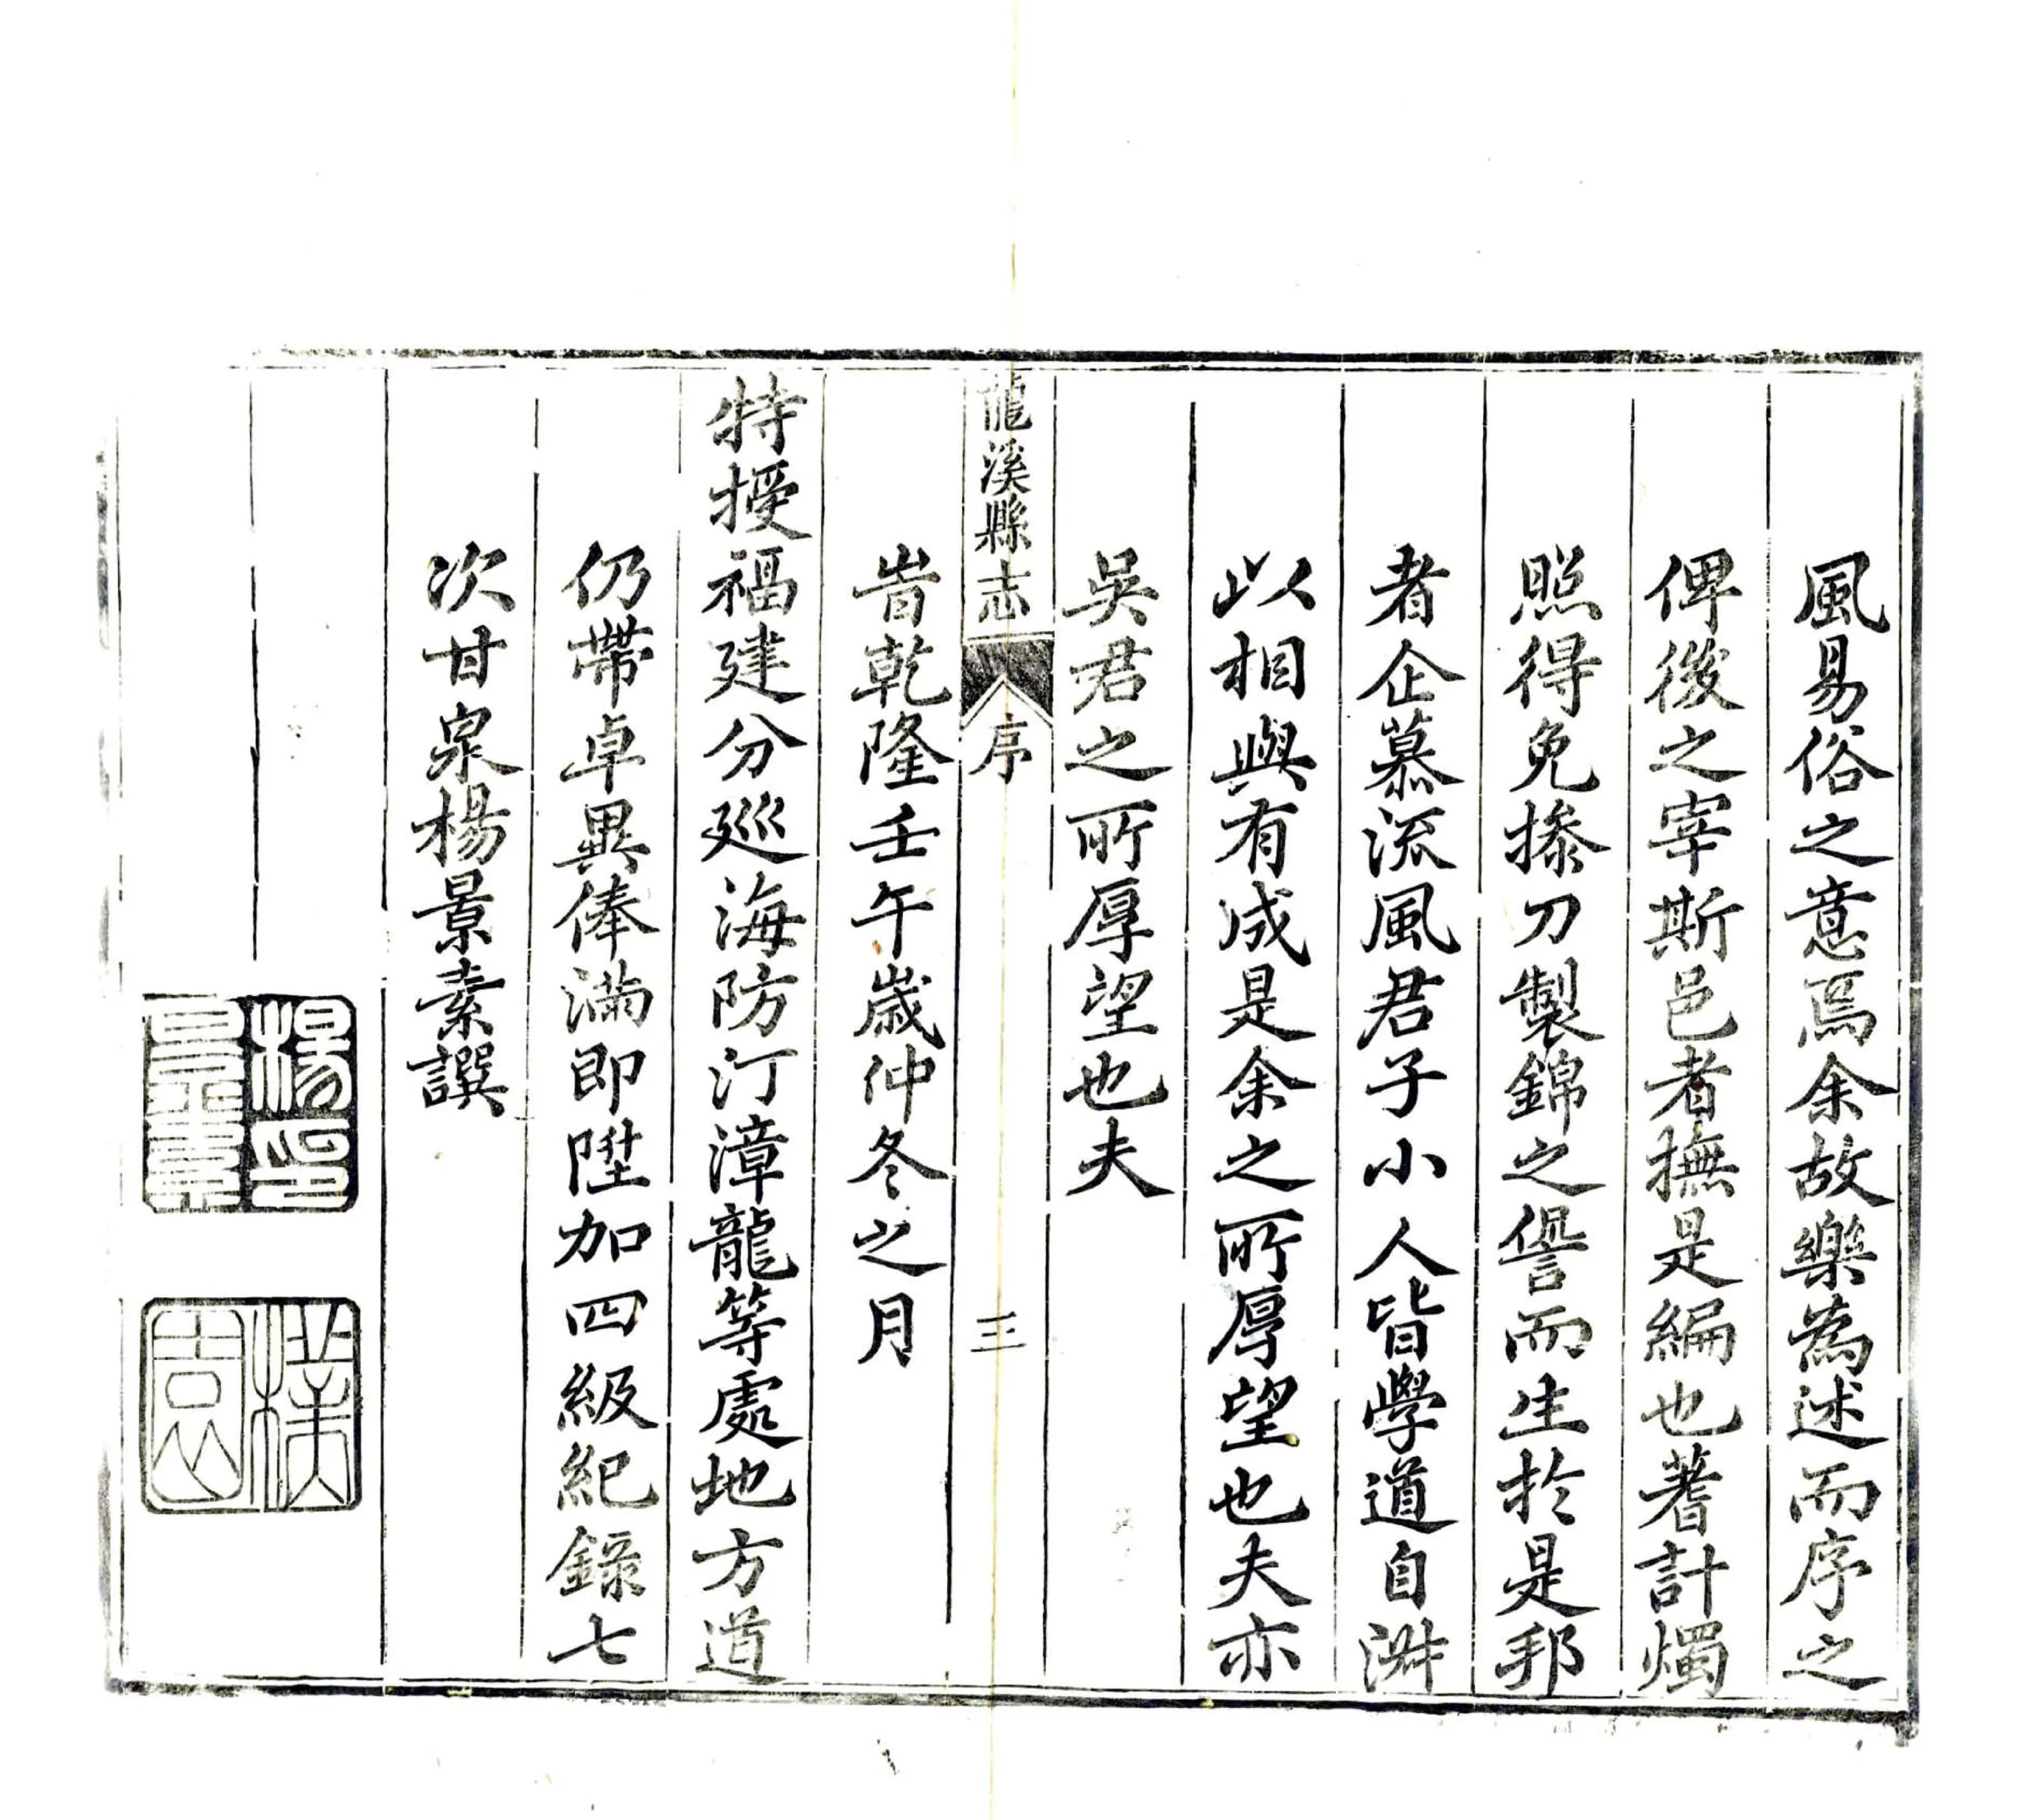 風易俗之意焉余故樂為述而序之
俾後之宰斯邑者撫是編也蓍計燭
照得免操刀製錦之譽而生於是邦
者企慕流風君子小人皆學道自淑
以相與有成是余之所厚望也夫亦
吳君之所厚望也夫
龍溪縣志
序
三
旹乾隆壬午歲仲冬之月
特授福建分巡海防汀漳龍等處地方道
仍帶卓異俸滿即陞加四級紀錄七
次甘泉楊景素譔
楊印景素
樸園